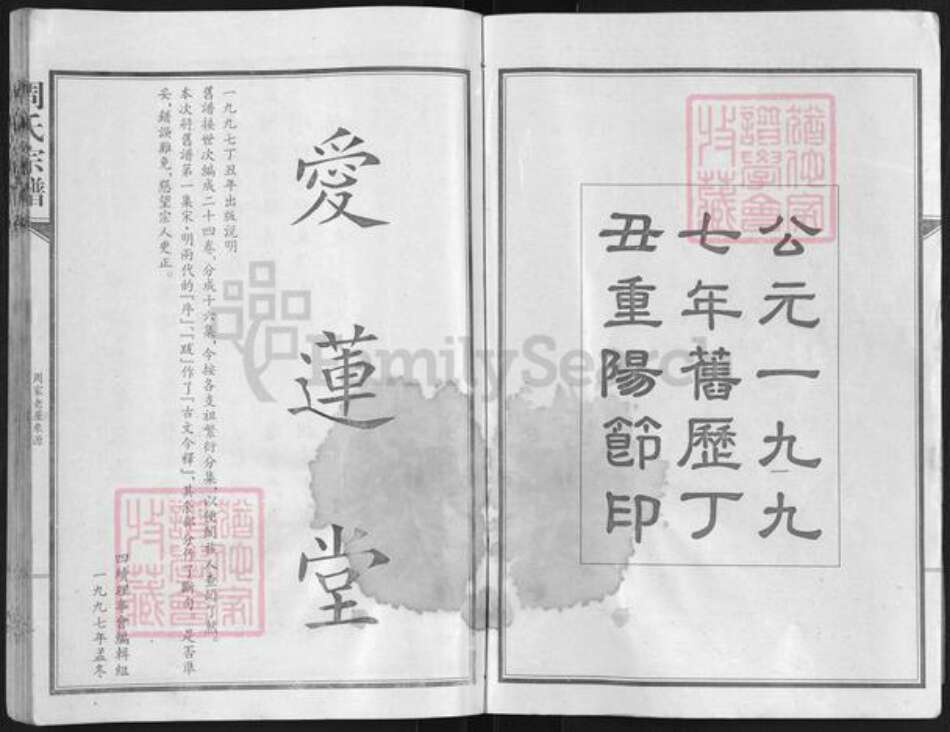 公元一九九
七年舊歷丁
丑重陽節印
愛蓮堂
一九九七丁丑年出版説明
舊譜按世次編成二十四卷，分成十六集，今按各支祖繁衍分集，以便閲族人查閲了然。
本次將舊譜第一集宋·明兩代的『序』、『跋』作了『古文今釋』，其余部分作了斷句，是否準
妥，錯誤難免，懇望宗人更正。
四續理事會編輯組
一九九七年孟冬
周氏宗譜
周家老屋來源
譜學會
收藏
FamilySearch